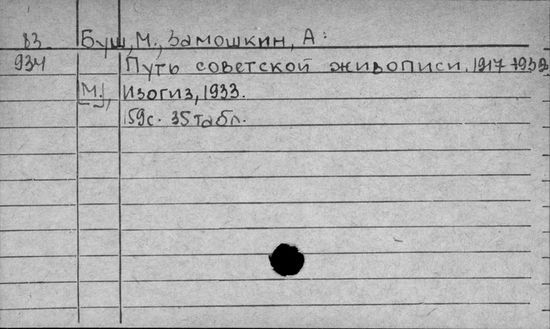 83 Буш, М., Замошкин, А:
934 Путь советской живописи. 1917-1932
[М.], Изогиз, 1933.
159с. 35 табл.